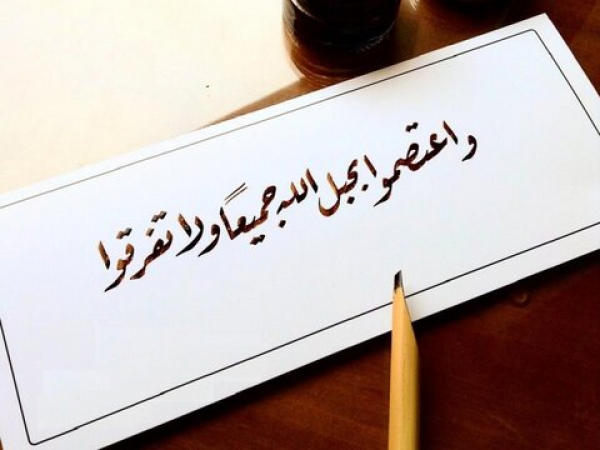 واعتصموا بحبل الله جميعاً ولا تفرقوا